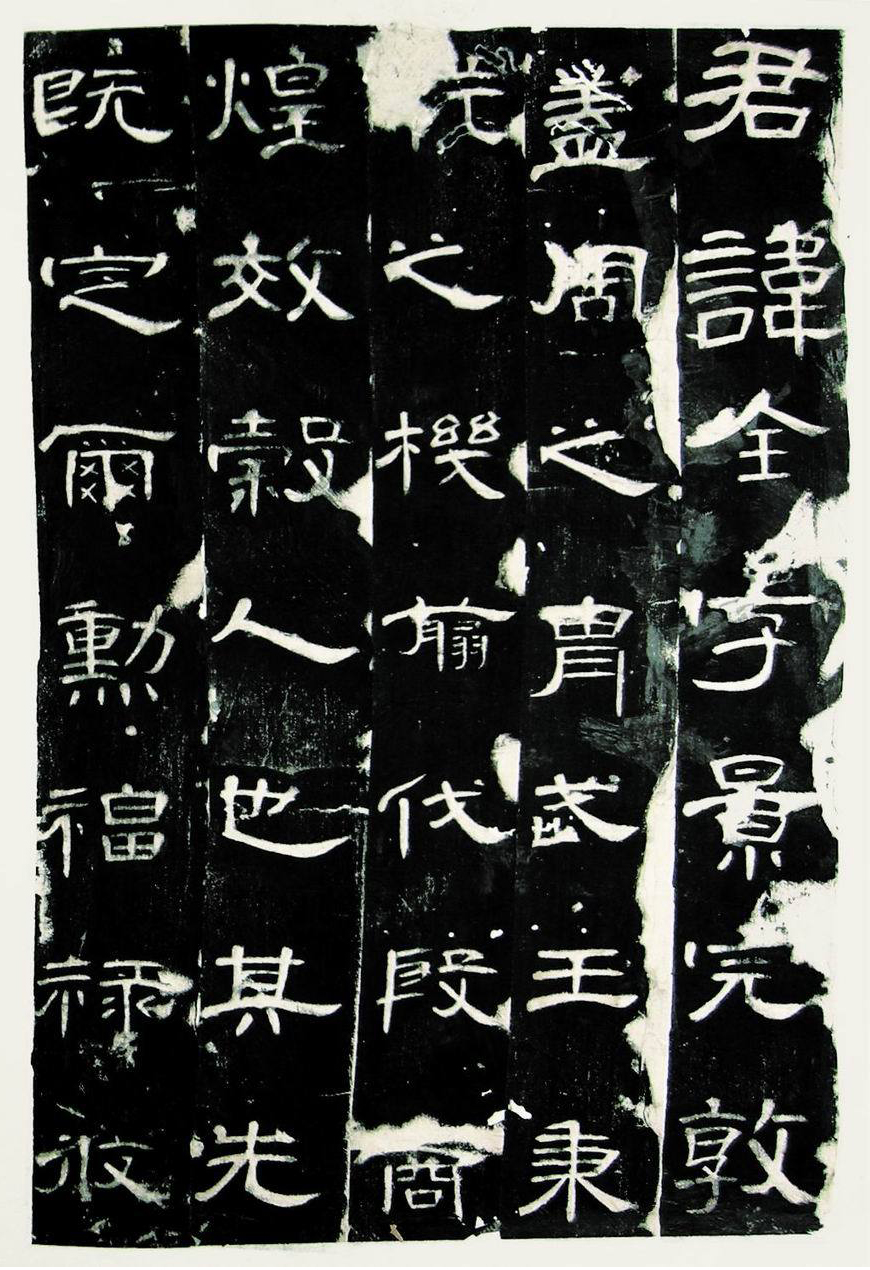 君諱全字景完敦
蓋周之胄武王秉
之機翦伐殷商
煌效穀人也其先
既定爾勳福祿攸